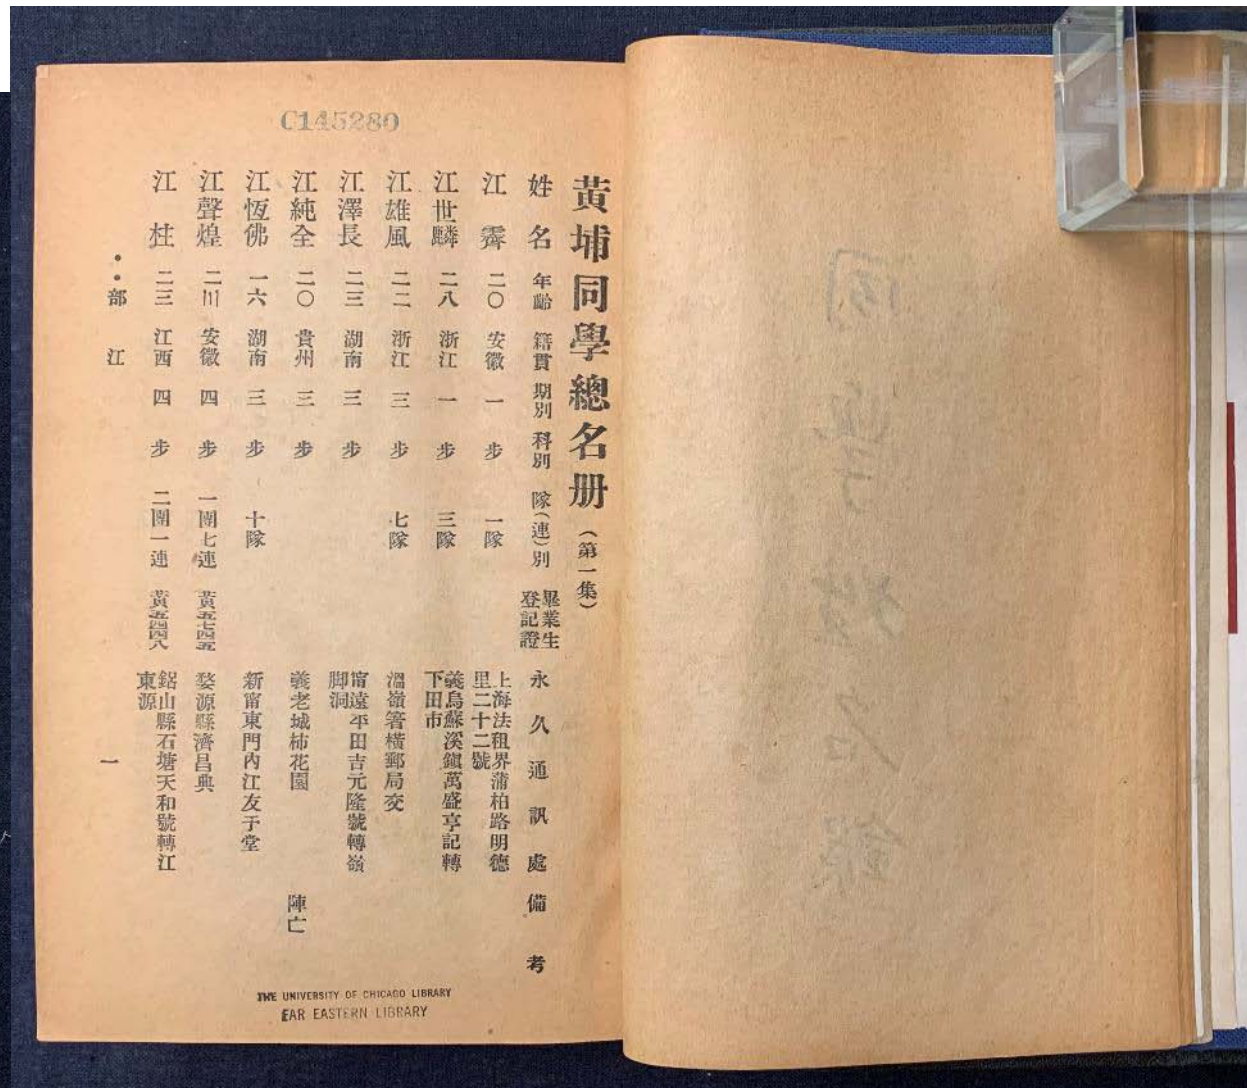 C145280
黃埔同學總名册（第一集）
姓名 年齡 籍貫 期別 科別 隊(連)別 畢業生登記證 永久通訊處 備考
江霽 二〇 安徽 一 步 一隊 上海法租界蒲柏路明德里二十二號
江世麟 二八 浙江 一 步 三隊 義烏蘇溪鎭萬盛亨記轉下田市
江雄風 二二 浙江 三 步 七隊 溫嶺箬橫郵局交
江澤長 二三 湖南 三 步 甯遠平田吉元隆號轉嶺脚洞
江純全 二〇 貴州 三 步 義老城柿花園 陣亡
江恆佛 一六 湖南 三 步 十隊 新甯東門內江友于堂
江聲煌 二川 安徽 四 步 一團七連 黃五七四五 婺源縣濟昌典
江柱 二三 江西 四 步 二團一連 黃五四四八 鉛山縣石塘天和號轉江東源
部 江 一
THE UNIVERSITY OF CHICAGO LIBRARY
FAR EASTERN LIBRARY